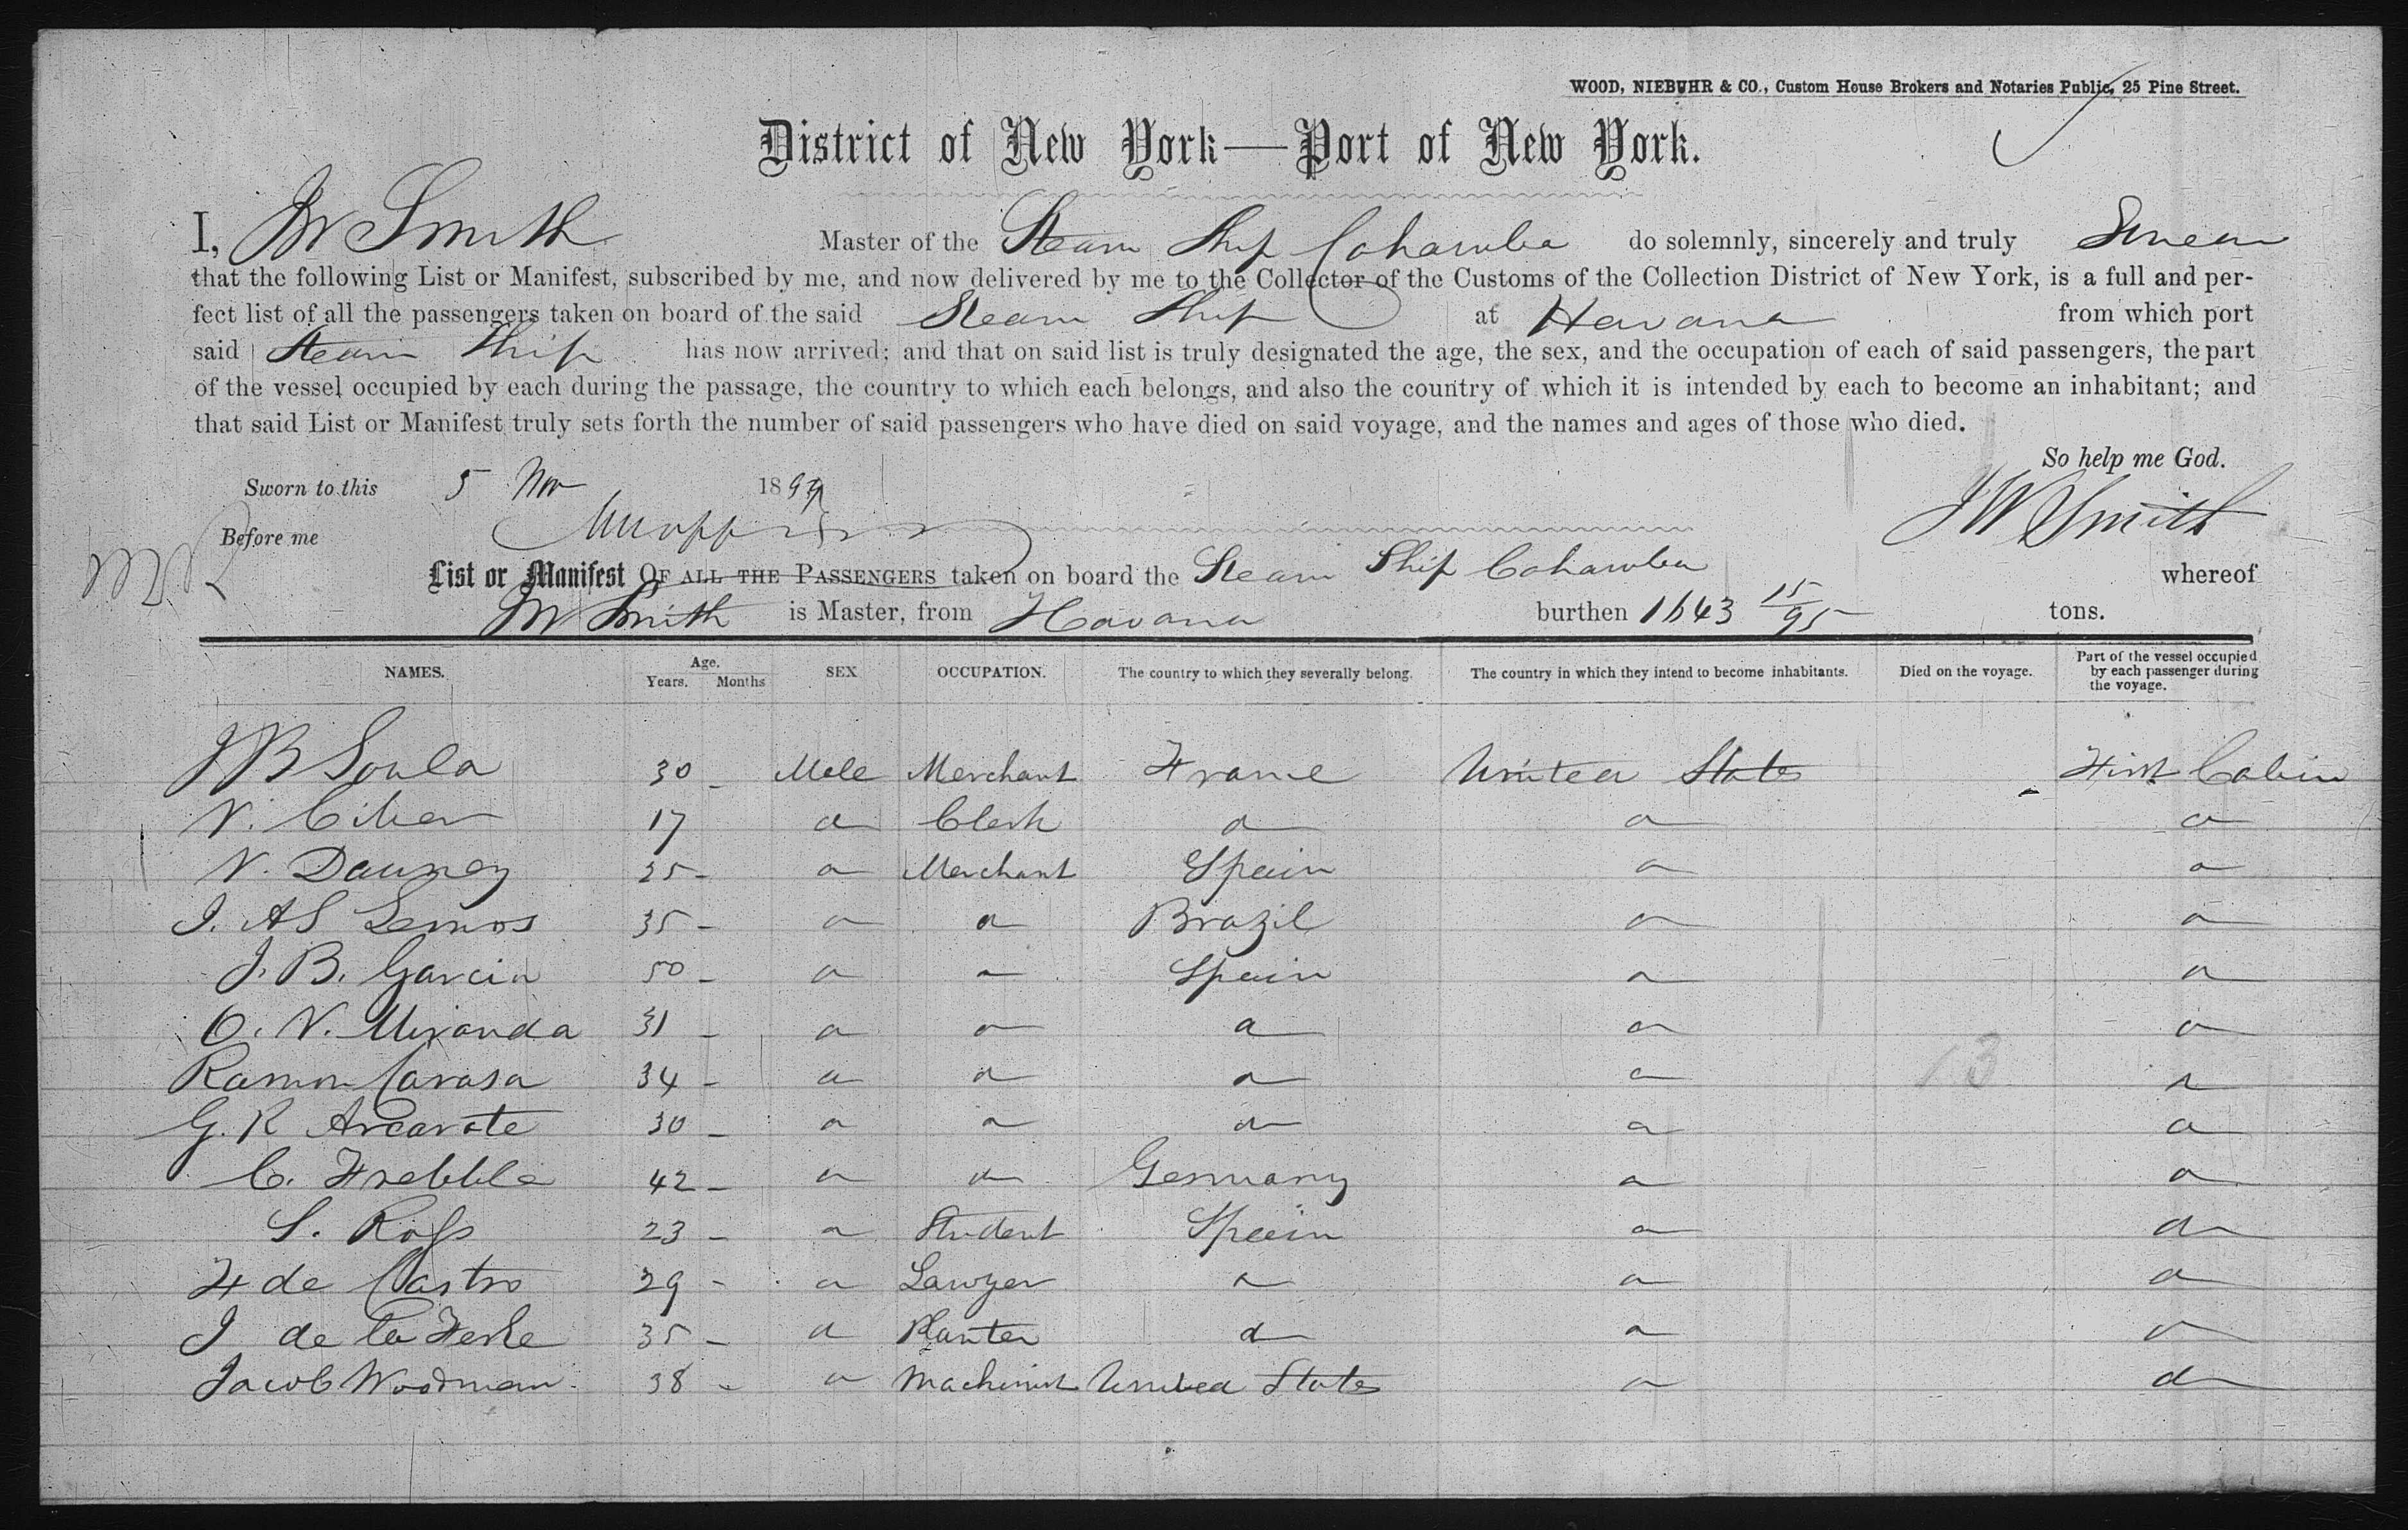 WOOD, NIEBUHR & CO., Custom House Brokers and Notaries Public, 25 Pine Street.
District of New York—Port of New York.
I, JW Smith Master of the Steam Ship Cahawba do solemnly, sincerely and truly Swear
that the following List or Manifest, subscribed by me, and now delivered by me to the Collector of the Customs of the Collection District of New York, is a full and per-
fect list of all the passengers taken on board of the said Steam Ship at Havana from which port
said Steam Ship has now arrived; and that on said list is truly designated the age, the sex, and the occupation of each of said passengers, the part
of the vessel occupied by each during the passage, the country to which each belongs, and also the country of which it is intended by each to become an inhabitant; and
that said List or Manifest truly sets forth the number of said passengers who have died on said voyage, and the names and ages of those who died.
So help me God.
Sworn to this 5 Nov 18
JW Smith
Before me
List or Manifest OF ALL THE PASSENGERS taken on board the Steam Ship Cahawba whereof
JW Smith is Master, from Havana burthen 1643 15/95 tons.
NAMES. Age. Years. Months SEX OCCUPATION. The country to which they severally belong. The country in which they intend to become inhabitants. Died on the voyage. Part of the vessel occupied by each passenger during the voyage.
JB Soula 30 - Male Merchant France United States First Cabin
N. 17 d Clerk d d d
N. Dauney 25 - d Merchant Spain d d
J. AS Lemos 35 - d d Brazil d d
J. B. Garcia 50 - d d Spain d d
O. N. Miranda 31 - d d d d d
Ramon Carasa 34 - d d d d d
13
G. R Arcarate 30 - d d d d d
C. 42 - d d Germany d d
S. Rofs 23 - d Student Spain d d
F de Castro 29 - d Lawyer d d d
J de la 35 - d Planter d d d
Jacob Woodman 38 - d Machinist United States d d